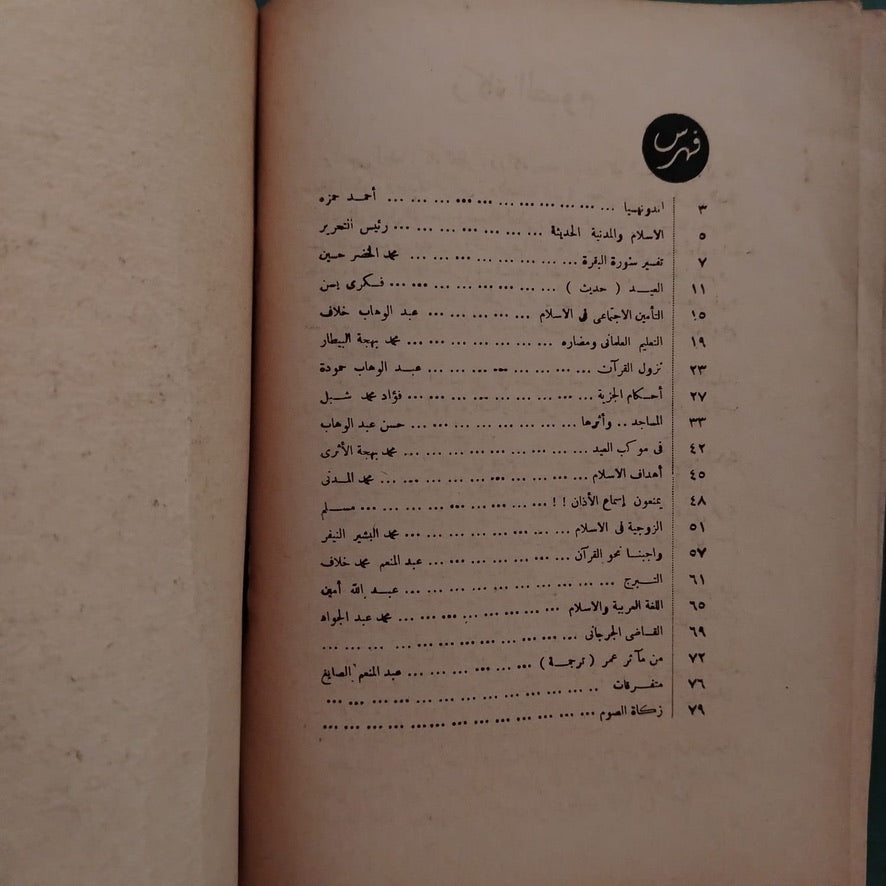 فهرس
٣ اندونيسيا ... ... ... ... ... ... ... ... ... ... أحمد حمزه
٥ الاسلام والمدنية الحديثة ... ... ... ... ... ... ... رئيس التحرير
٧ تفسير سورة البقرة ... ... ... ... ... ... ... محمد الخضر حسين
١١ العيد ( حديث ) ... ... ... ... ... ... ... فكرى يسن
١٥ التأمين الاجتماعى فى الاسلام ... ... ... ... ... عبد الوهاب خلاف
١٩ التعليم العلمانى ومضاره ... ... ... ... ... ... ... محمد بهجة البيطار
٢٣ نزول القرآن ... ... ... ... ... ... ... عبد الوهاب حمودة
٢٧ أحكام الجزية ... ... ... ... ... ... ... ... فؤاد محمد شبل
٣٣ المساجد .. وأثرها ... ... ... ... ... ... ... ... حسن عبد الوهاب
٤٢ فى موكب العيد ... ... ... ... ... ... ... ... محمد بهجة الأثرى
٤٥ أهداف الاسلام ... ... ... ... ... ... ... ... ... محمد المدنى
٤٨ يمنعون إسماع الأذان ! ! ... ... ... ... ... ... ... ... مسلم
٥١ الزوجية فى الاسلام ... ... ... ... ... ... ... محمد البشير النيفر
٥٧ واجبنا نحو القرآن ... ... ... ... ... ... عبد المنعم محمد خلاف
٦١ التبرج ... ... ... ... ... ... ... ... ... عبد الله أمين
٦٥ اللغة العربية والاسلام ... ... ... ... ... ... ... محمد عبد الجواد
٦٩ القاضى الجرجانى ... ... ... ... ... ... ... ... ... ... ...
٧٢ من مآثر عمر ( ترجمة ) ... ... ... ... ... ... عبد المنعم الصايغ
٧٦ متفرقات .. ... ... ... ... ... ... ... ... ... ... ... ...
٧٩ زكاة الصوم ... ... ... ... ... ... ... ... ... ... ... ...